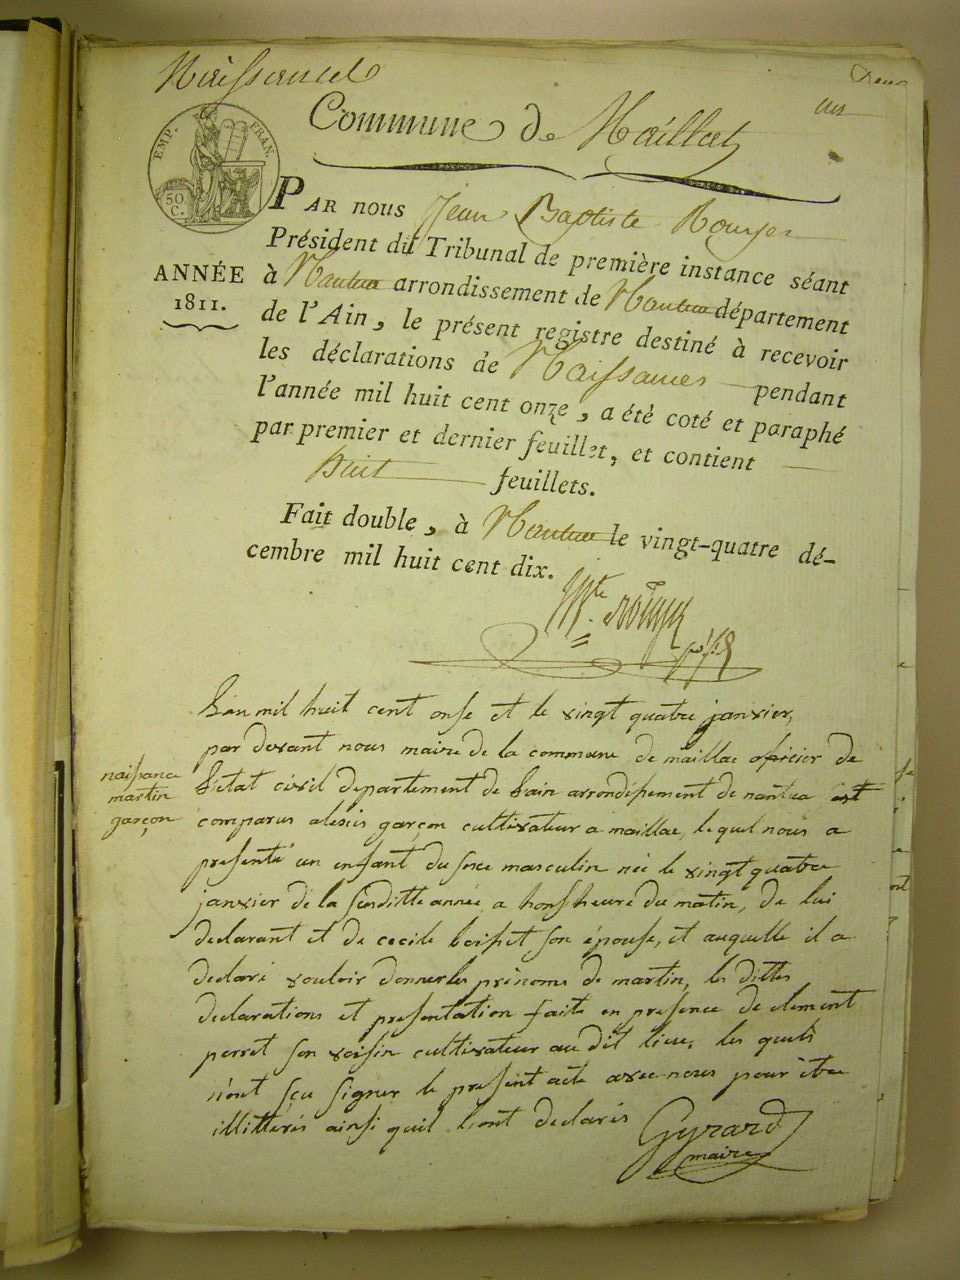 Naissances
un
EMP. FRAN.
50 C.
Commune de Maillat
ANNÉE
1811.
PAR nous Jean Baptiste Rouyer
Président du Tribunal de première instance séant
à Nantua arrondissement de Nantua département
de l'Ain, le présent registre destiné à recevoir
les déclarations de Naissances pendant
l'année mil huit cent onze, a été coté et paraphé
par premier et dernier feuillet, et contient
huit feuillets.
Fait double, à Nantua le vingt-quatre dé-
cembre mil huit cent dix.
naissance
martin
garçon
L'an mil huit cent onse et le vingt quatre janvier,
par devant nous maire de la commune de maillac oficier de
L'etat civil departement de Lain arrondissement de nantua est
comparus alexis garçon cultivateur a maillac, lequel nous a
presenté un enfant du sexe masculin née le vingt quatre
janvier de la susditte année a honse heure du matin, de lui
declarant et de cecile boisset son épouse, et auquelle il a
declaré vouloir donner les prénoms de martin, les dittes
declarations et presentation faite en presence de clement
perret son voisin cultivateur au dit lieu, les quels
n'ont sçu signer le present acte avec nous pour être
illitterés ainsi quil l'ont declarés
Gyrard
maire